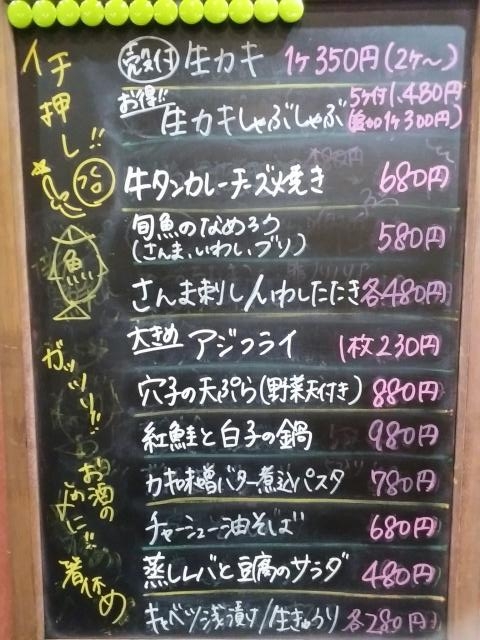 イチ押し!!
魚
ガッツリ!!
お酒の
箸休め
殻付 生カキ 1ケ350円(2ケ〜)
お得!! 生カキしゃぶしゃぶ 5ケ付1,480円
(追加1ケ300円)
牛タンカレーチーズ焼き 680円
旬魚のなめろう
(さんま、いわし、ブリ) 580円
さんま刺し/いわしたたき 各480円
大きめ アジフライ 1枚230円
穴子の天ぷら(野菜天付き) 880円
紅鮭と白子の鍋 980円
カキ味噌バター煮込パスタ 780円
チャーシュー油そば 680円
蒸しレバと豆腐のサラダ 480円
キャベツ浅漬け/生きゅうり 各280円